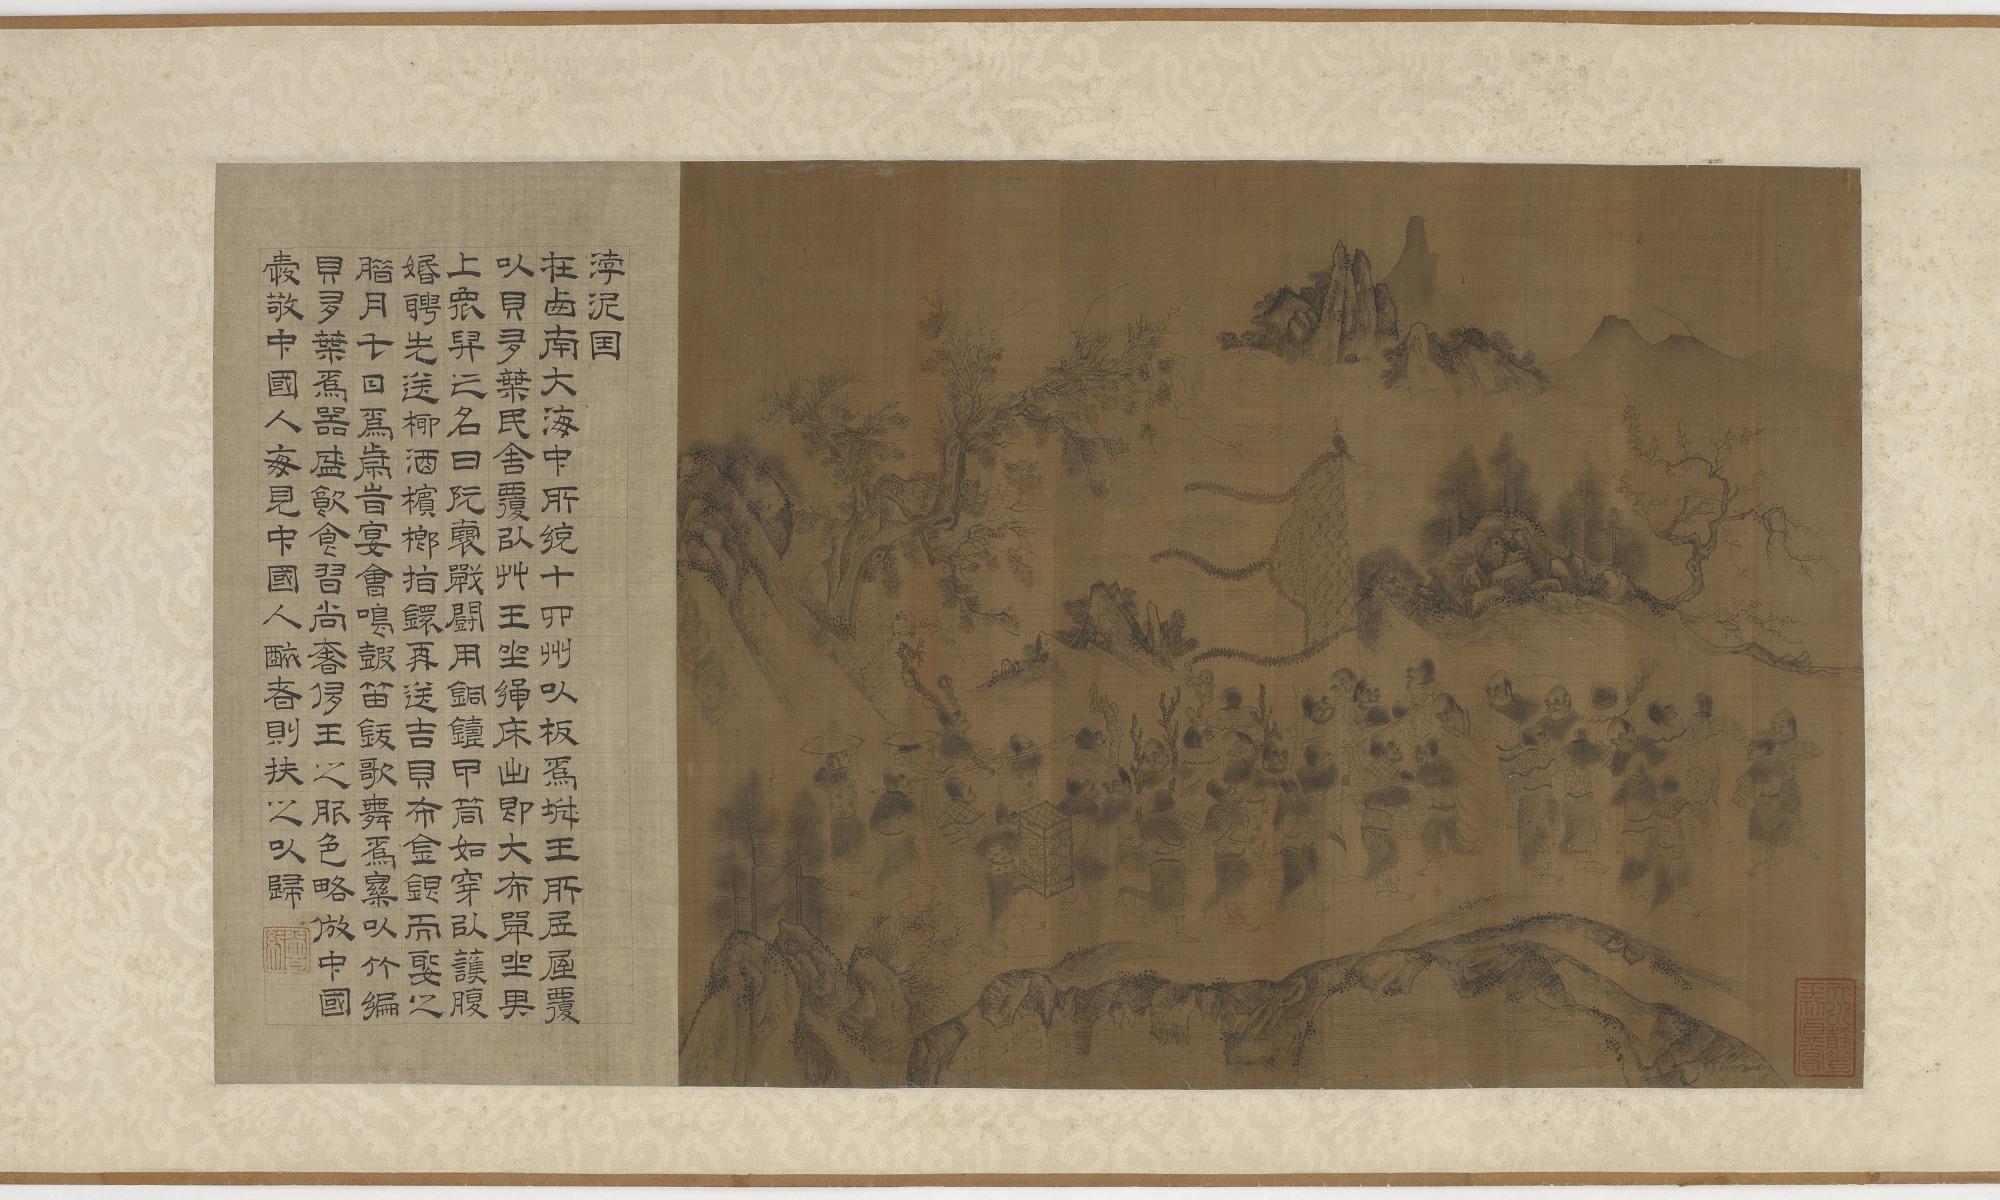 浡泥国
在西南大海中所統十四州以板爲城王所居屋覆
以貝多葉民舍覆以艸王坐繩床出即大布單坐其
上衆舁之名曰阮囊戰鬭用銅鑄甲筒如穿以護腹
婚聘先送椰酒檳榔指鐶再送吉貝布金銀而娶之
腊月七日爲歲昔宴會鳴鼓笛鈸歌舞爲樂以竹編
貝多葉爲器盛飲食習尚奢侈王之服色略倣中國
最敬中國人每見中國人醉者則扶之以歸